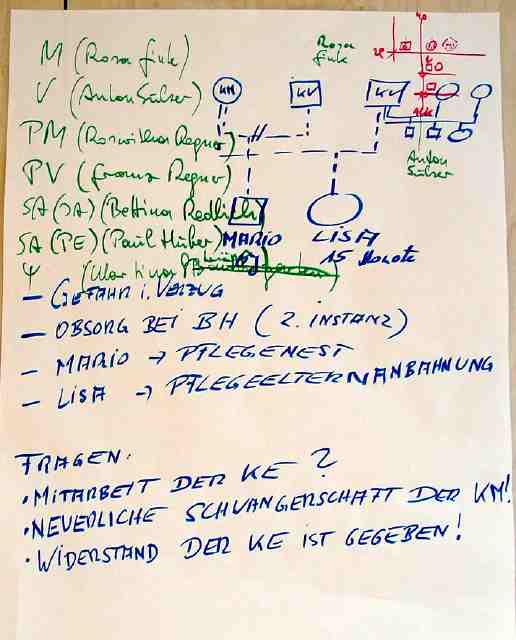 M (Rosa Fink)
V (Anton Sulser)
PM (Roswitha Regner)
PV (Franz Regner)
SA (JA) (Bettina Redlich)
SA (PE) (Paul Huber)
Ψ
Rosa
Fink
KM
KV
KV
Anton
Sulser
MARIO
LISA
15 Monate
- GEFAHR i. VERZUG
- OBSORG BEI BH (2. INSTANZ)
- MARIO → PFLEGENEST
- LISA → PFLEGEELTERNANBAHNUNG
FRAGEN:
• MITARBEIT DER KE?
• NEUERLICHE SCHWANGERSCHAFT DER KM!
• WIDERSTAND DER KE IST GEGEBEN!